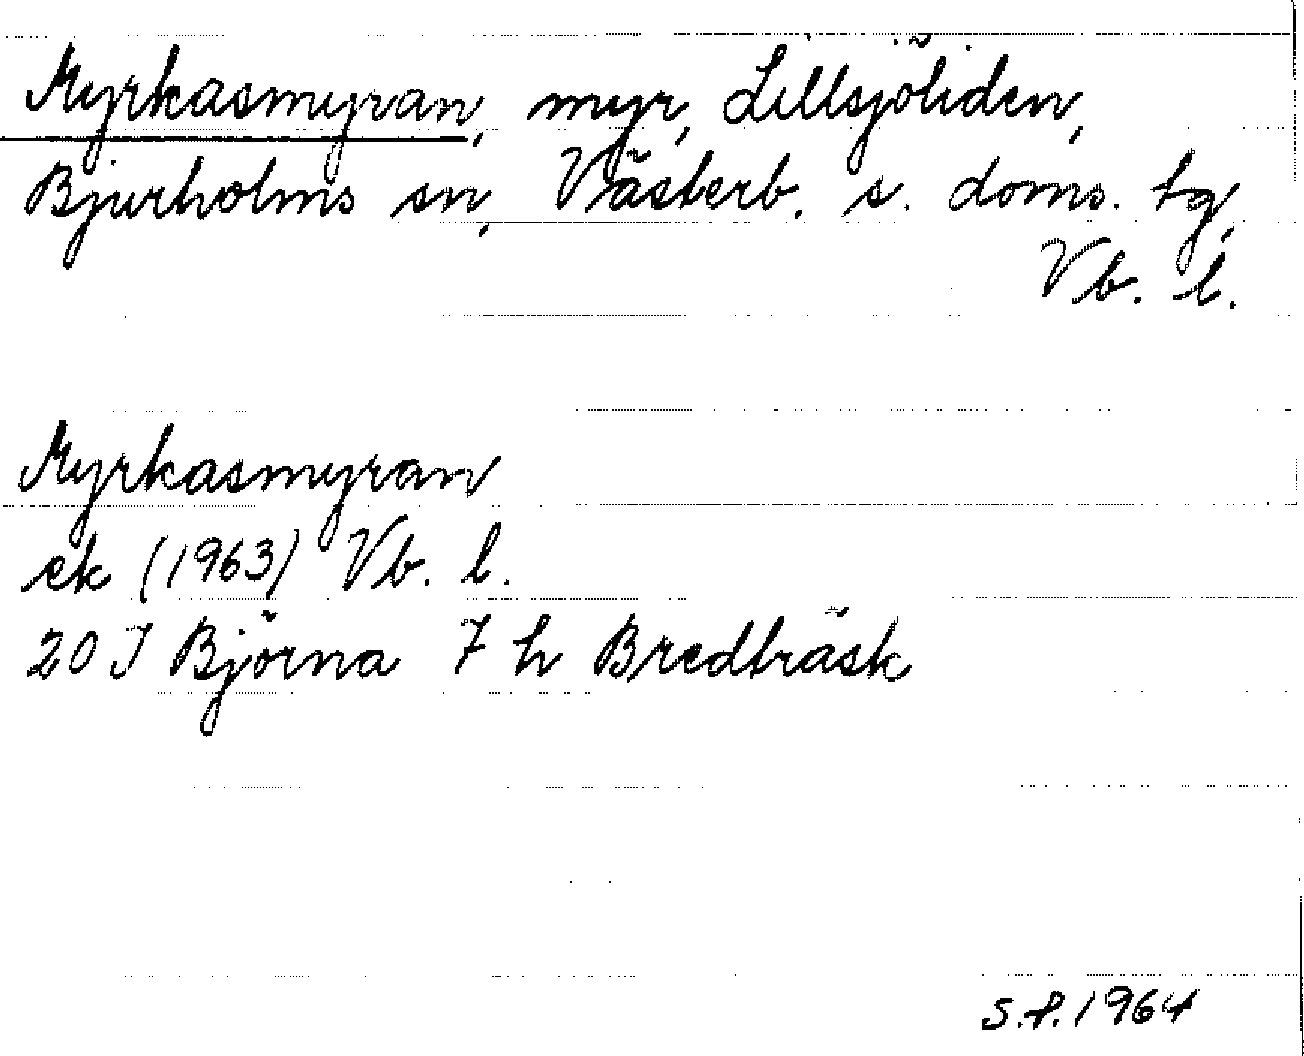 Myrkasmyran, myr, Lillsjöliden,
Bjurholms sn, Västerb. s. doms. tg,
Vb. l.
Myrkasmyran
ek (1963) Vb. l.
20 J Björna 7 h Bredträsk
S.P. 1964